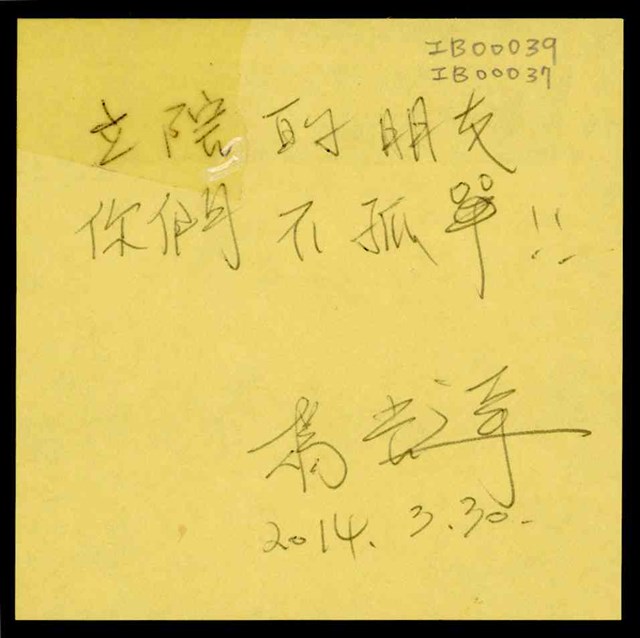 IB00039
IB00037
立院的朋友
你們不孤單!!
2014.3.30.